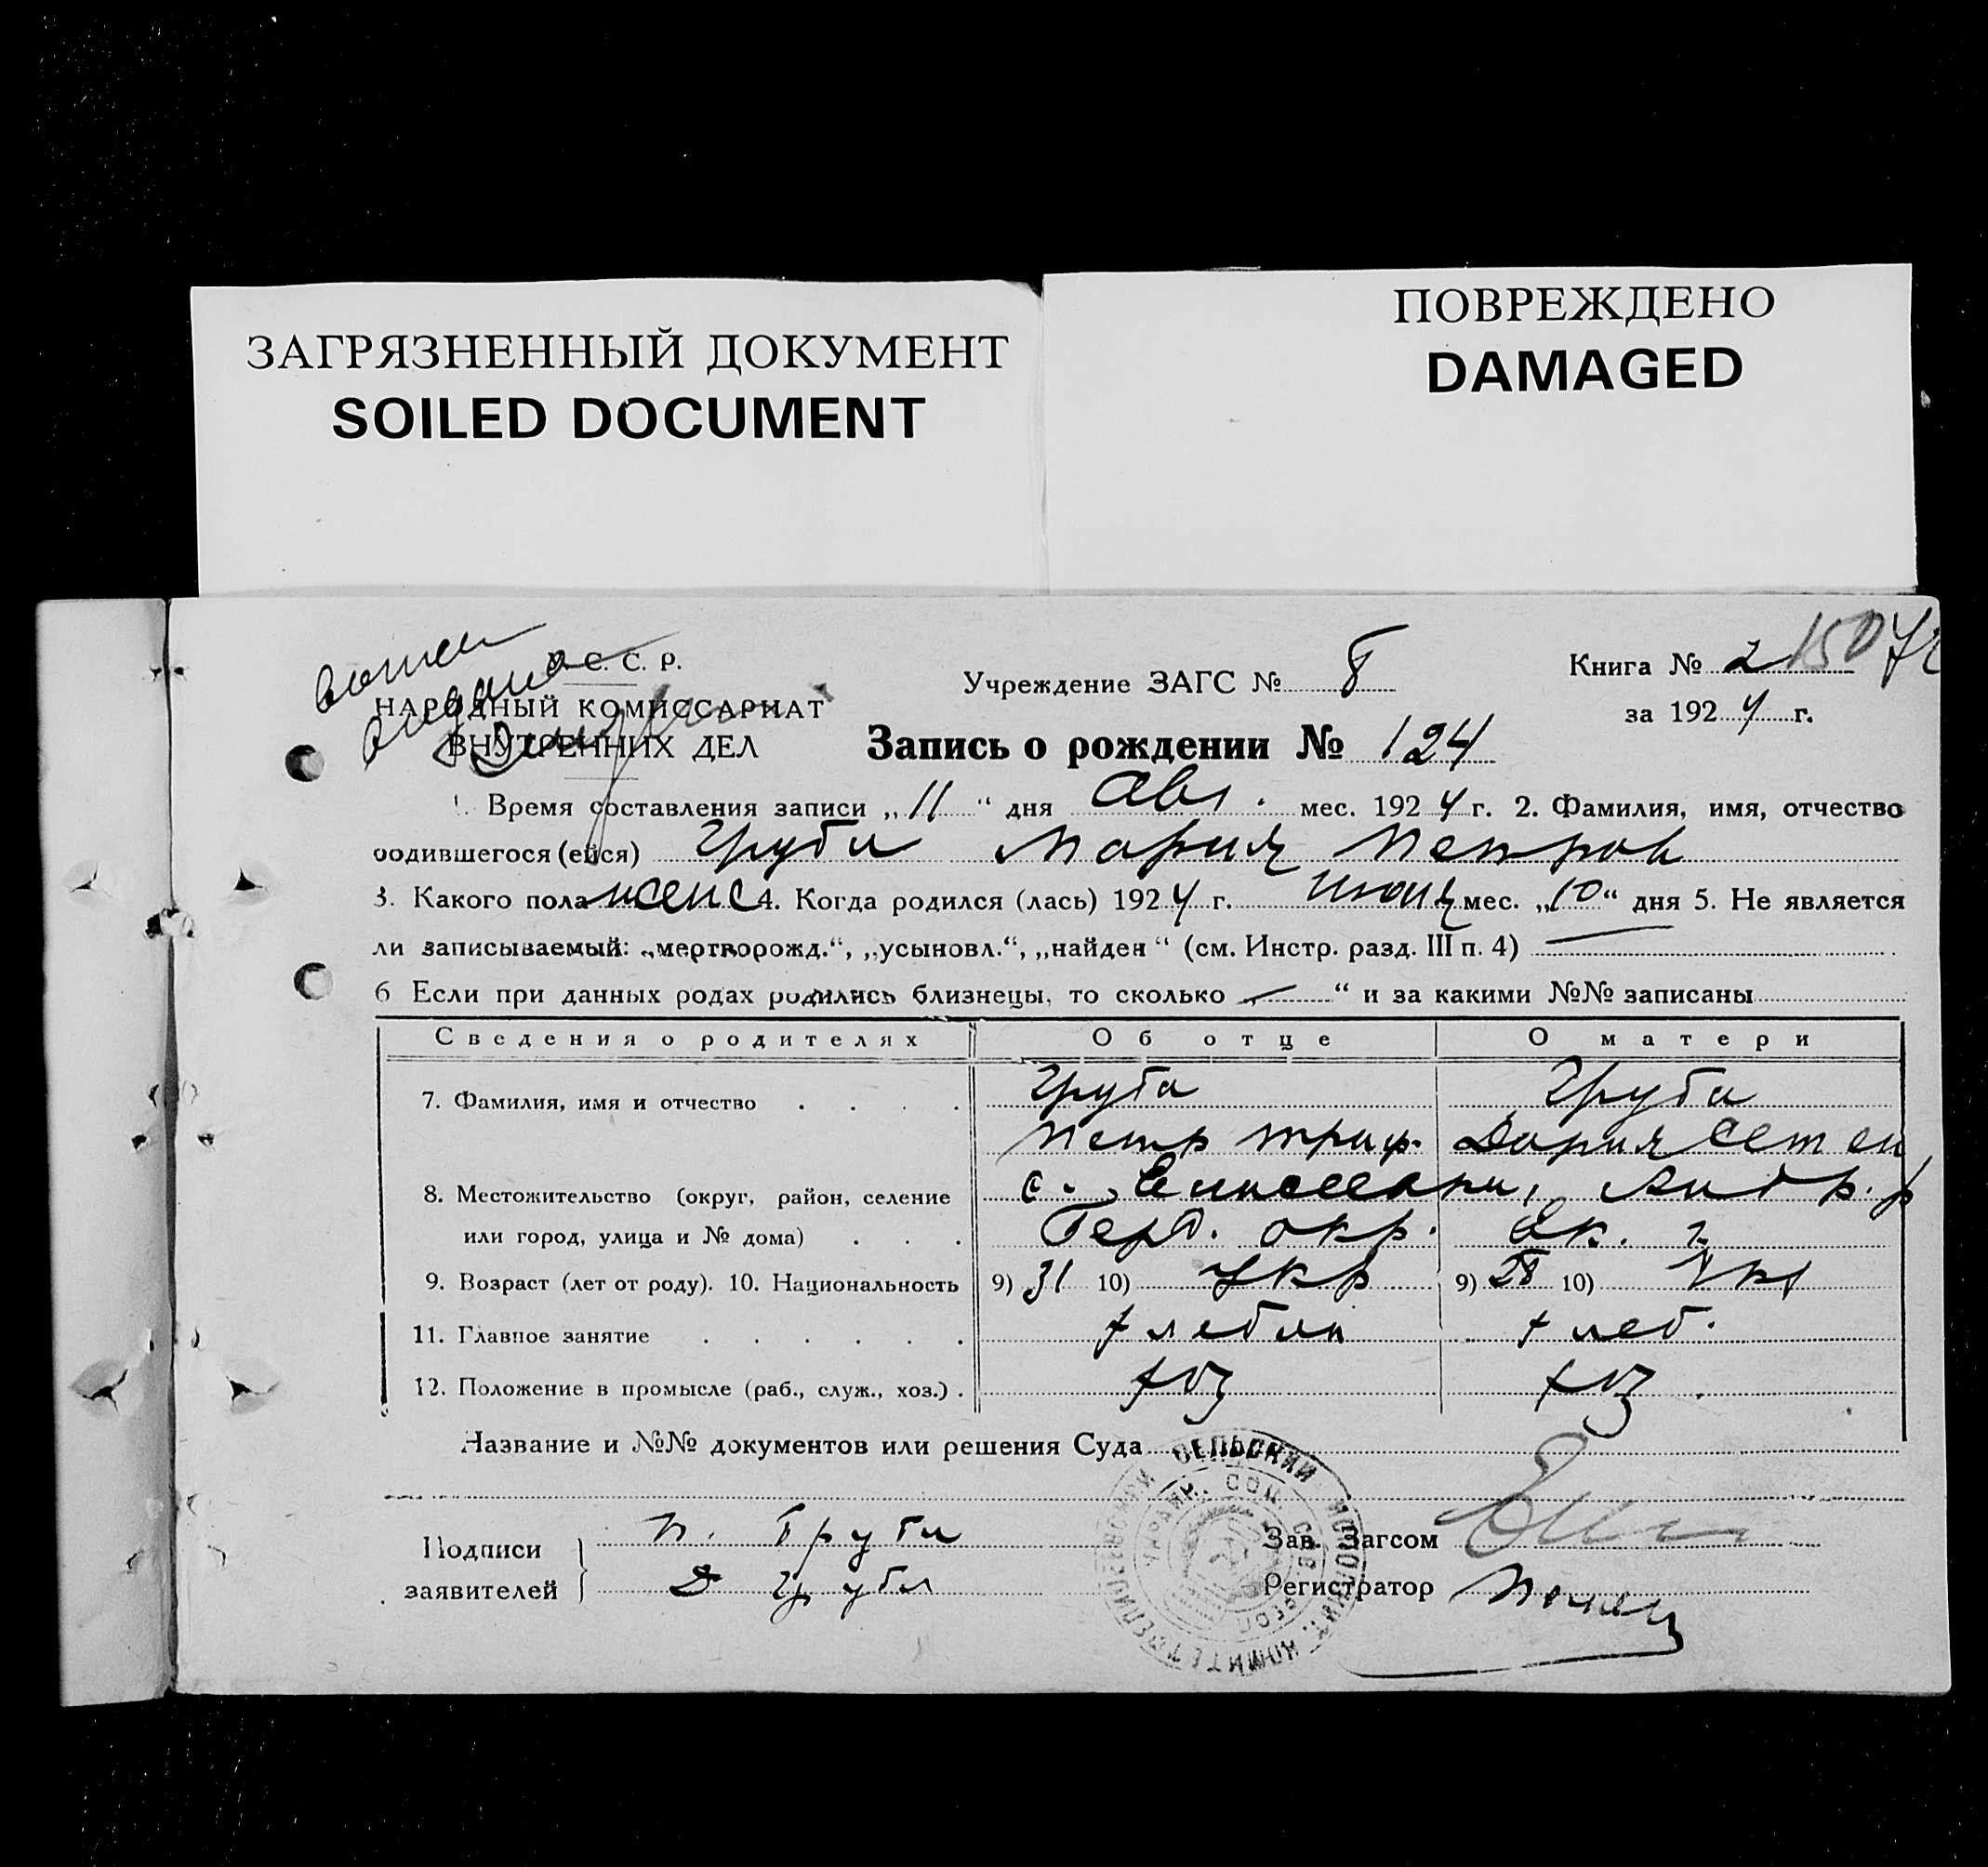 ЗАГРЯЗНЕННЫЙ ДОКУМЕНТ
SOILED DOCUMENT
ПОВРЕЖДЕНО
DAMAGED
С. С. Р.
НАРОДНЫЙ КОМИССАРИАТ
ВНУТРЕННИХ ДЕЛ
Учреждение ЗАГС № 8
Книга № 2 150
за 1924 г.
Запись о рождении № 124
1. Время составления записи „11“ дня Авг. мес. 1924 г. 2. Фамилия, имя, отчество
родившегося (ейся) Груба Мария Петров
3. Какого пола женс 4. Когда родился (лась) 1924 г. июня мес. „10“ дня 5. Не является
ли записываемый: „мертворожд.“, „усыновл.“, „найден“ (см. Инстр. разд. III п. 4) —
6 Если при данных родах родились близнецы, то сколько „—“ и за какими №№ записаны
Сведения о родителях Об отце О матери
7. Фамилия, имя и отчество . . . . Груба Груба
Петр Триф. Дария Семен
8. Местожительство (округ, район, селение с. Андр. р
или город, улица и № дома) . . . Берд. окр. Ек. г.
9. Возраст (лет от роду). 10. Национальность 9) 31 10) Укр 9) 28 10) Укр
11. Главное занятие . . . . . . хлебоп хлеб.
12. Положение в промысле (раб., служ., хоз.) . хоз хоз.
Название и №№ документов или решения Суда
СЕЛЬСКИЙ ИСПОЛНИТ. КОМИТЕТ
УКРАИН. СОЦ. СОВ. РЕСП.
Подписи
заявителей
П. Груба
Д Груба
Зав. Загсом
Регистратор